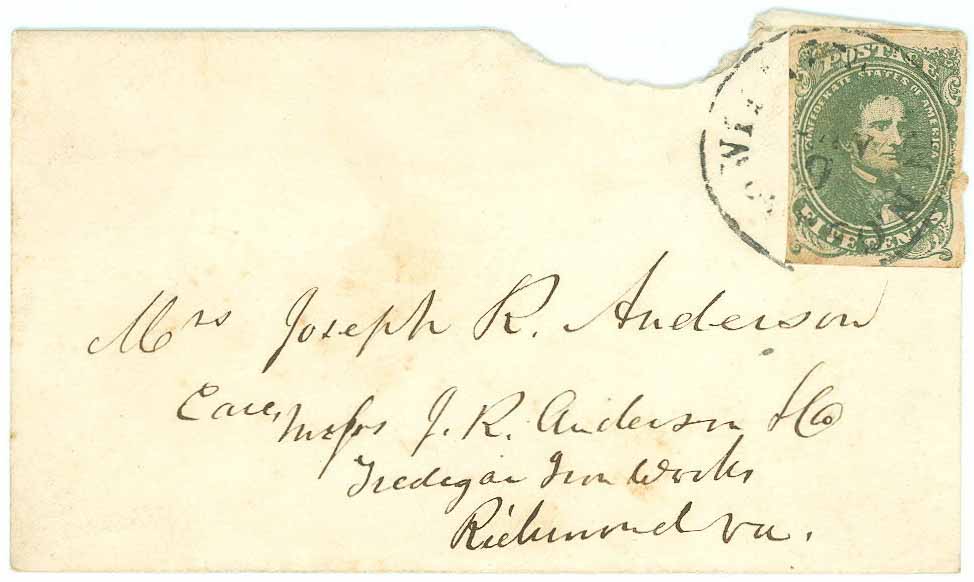 POSTAGE
CONFEDERATE STATES OF AMERICA
FIVE CENTS
Mrs Joseph R. Anderson
Care, Messrs J. R. Anderson & Co
Tredegar Iron Works
Richmond Va.